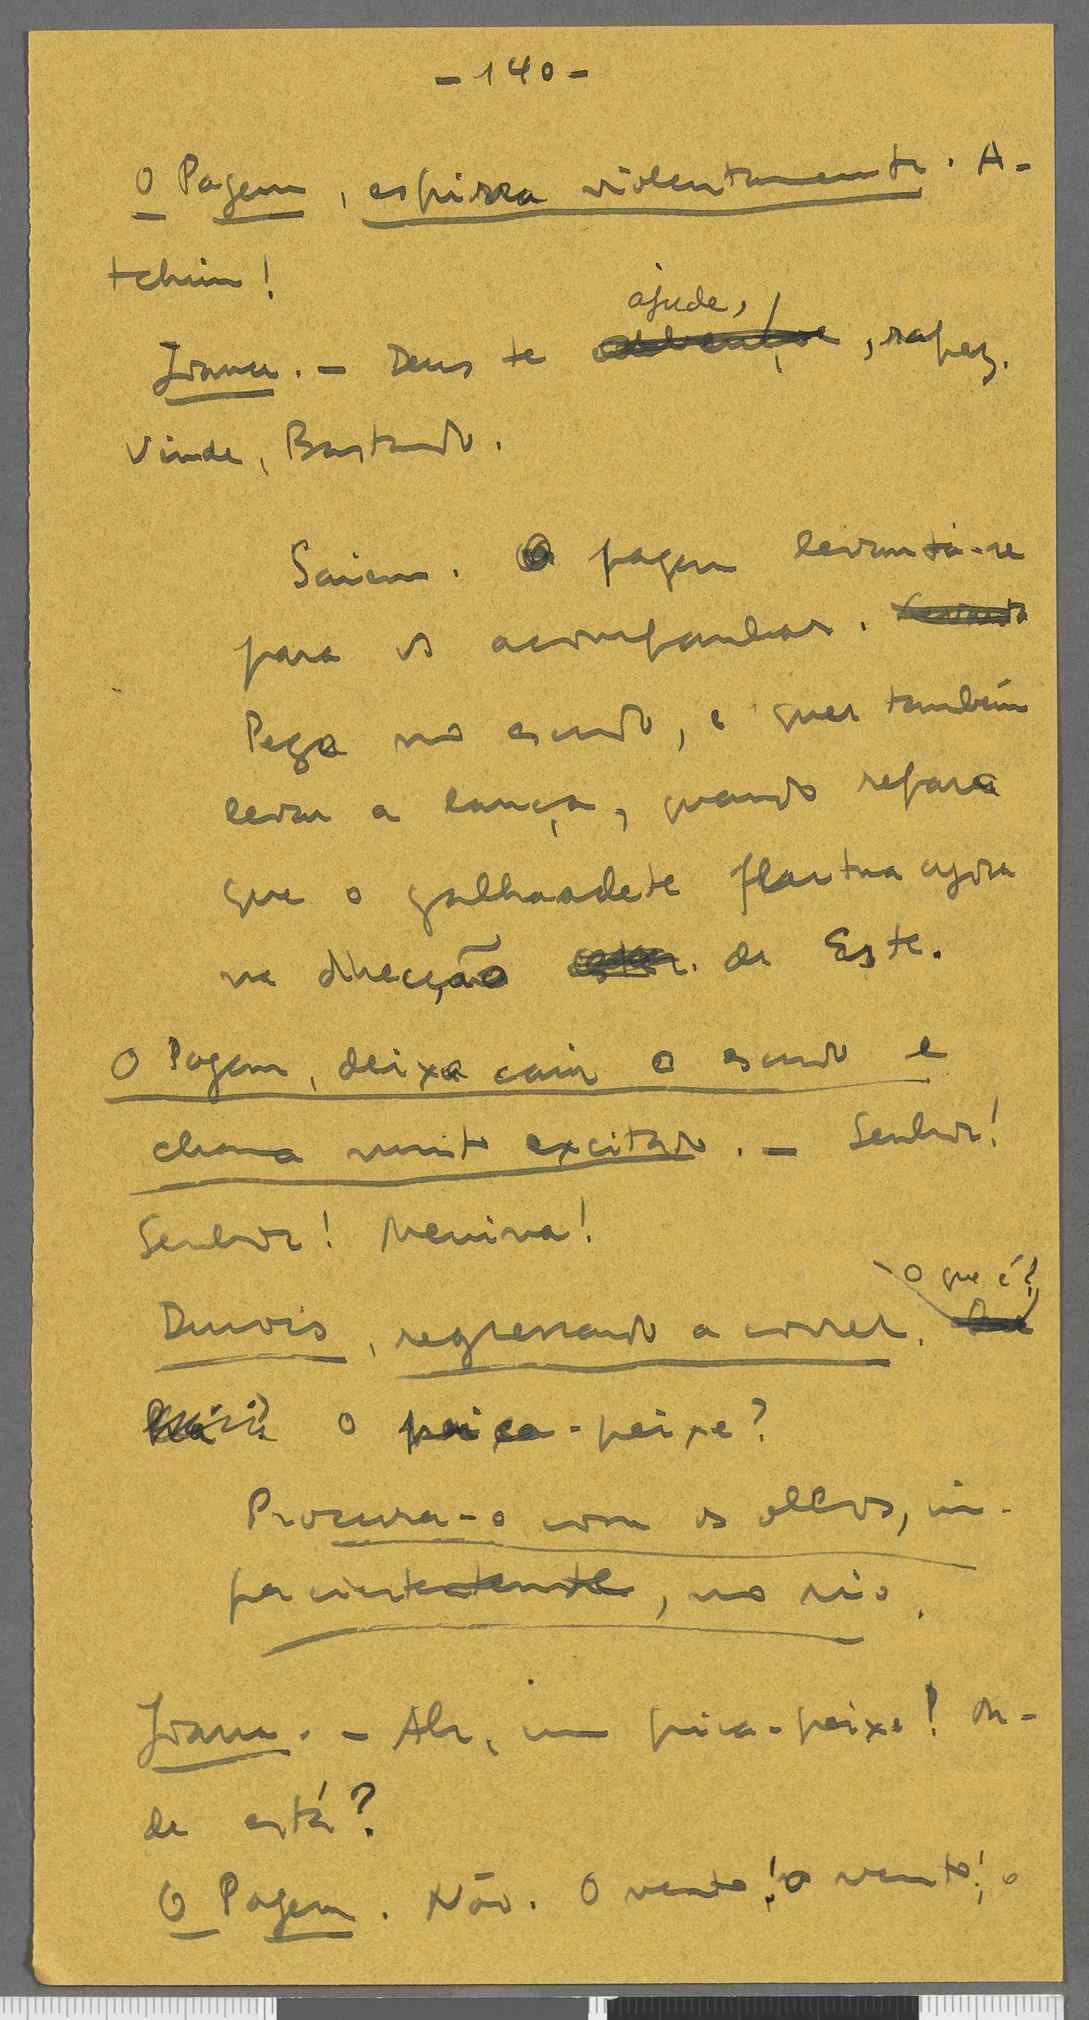 - 140 -
O Pagem, espirra violentamente. A-
tchim!
ajude,
Joana. - Deus te , rapaz.
Vinde, Bastardo.
Saiem. O pagem levanta-se
para os acompanhar.
Pega no escudo, e quer também
levar a lança, quando repara
que o galhardete flutua agora
na direcção de Este.
O Pagem, deixa cair o escudo e
chama muito excitado. - Senhor!
Senhor! Menina!
O que é?
Dunois, regressando a correr.
O pica-peixe?
Procura-o com os olhos, im-
paciente, no rio.
Joana. - Ah, um pica-peixe! On-
de está?
O Pagem. Não. O vento! o vento! o